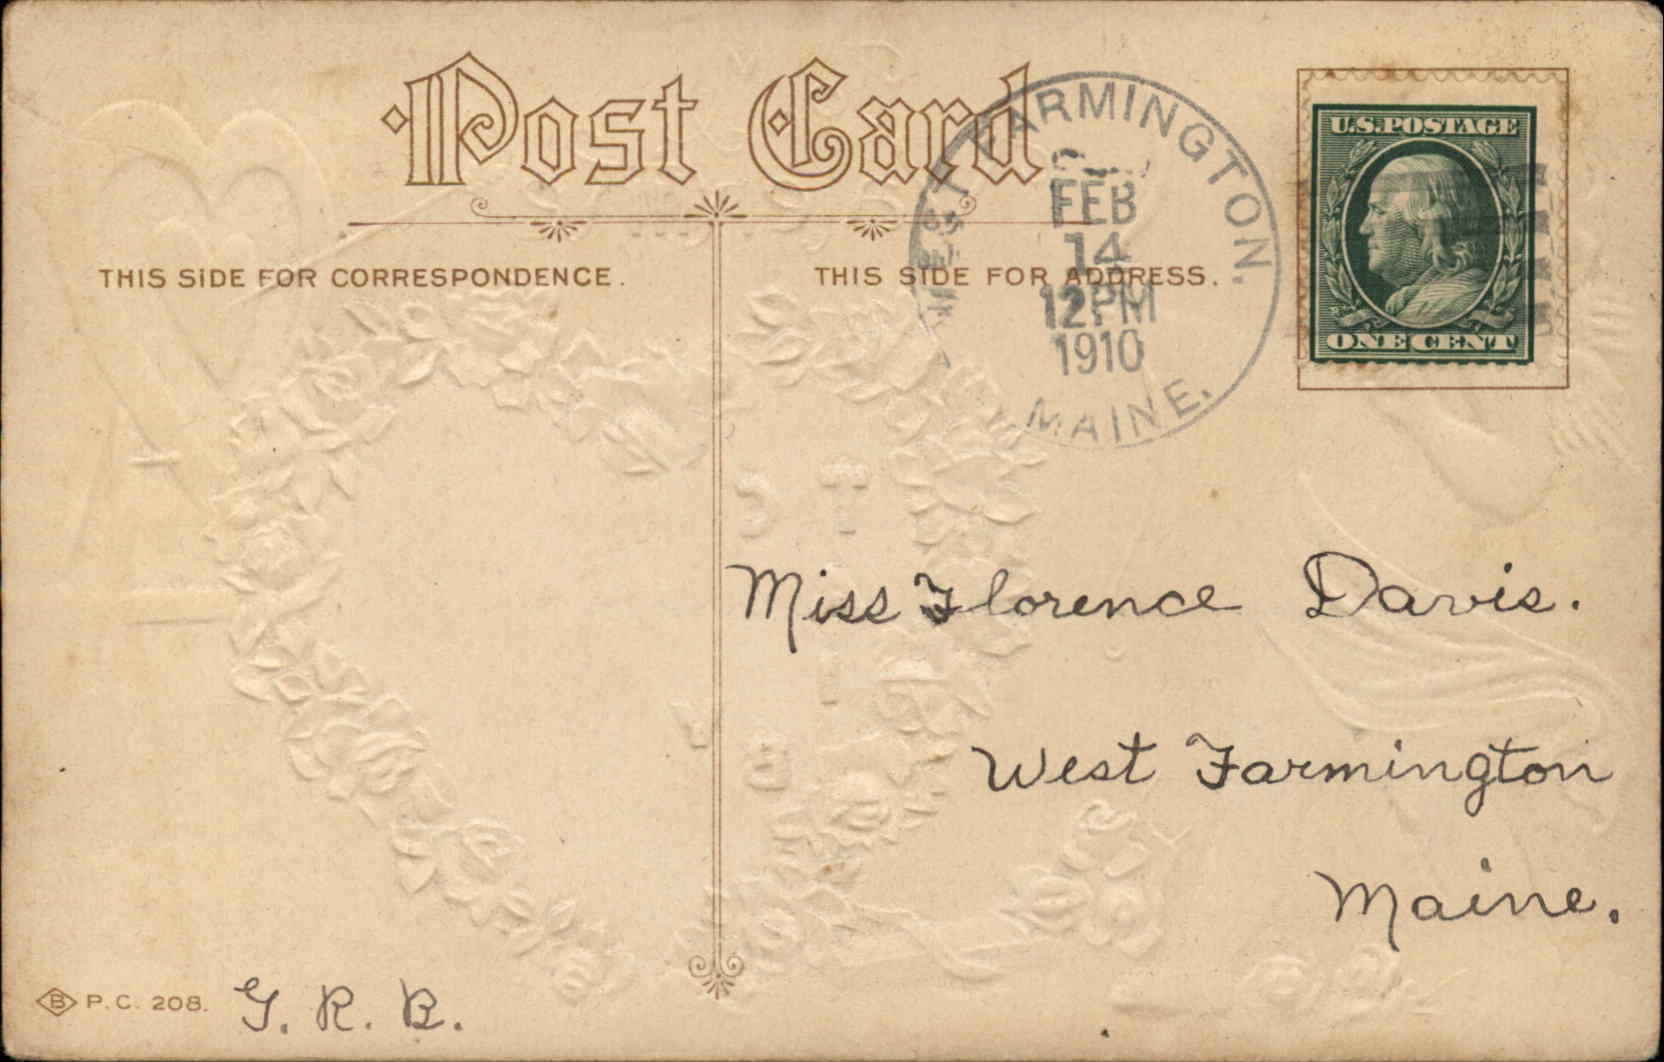 Post Card
THIS SIDE FOR CORRESPONDENCE.
THIS SIDE FOR ADDRESS.
WEST FARMINGTON.
FEB
14
12PM
1910
MAINE.
U.S.POSTAGE
ONE CENT
Miss Florence Davis.
West Farmington
Maine.
B P.C. 208.
G. R. B.